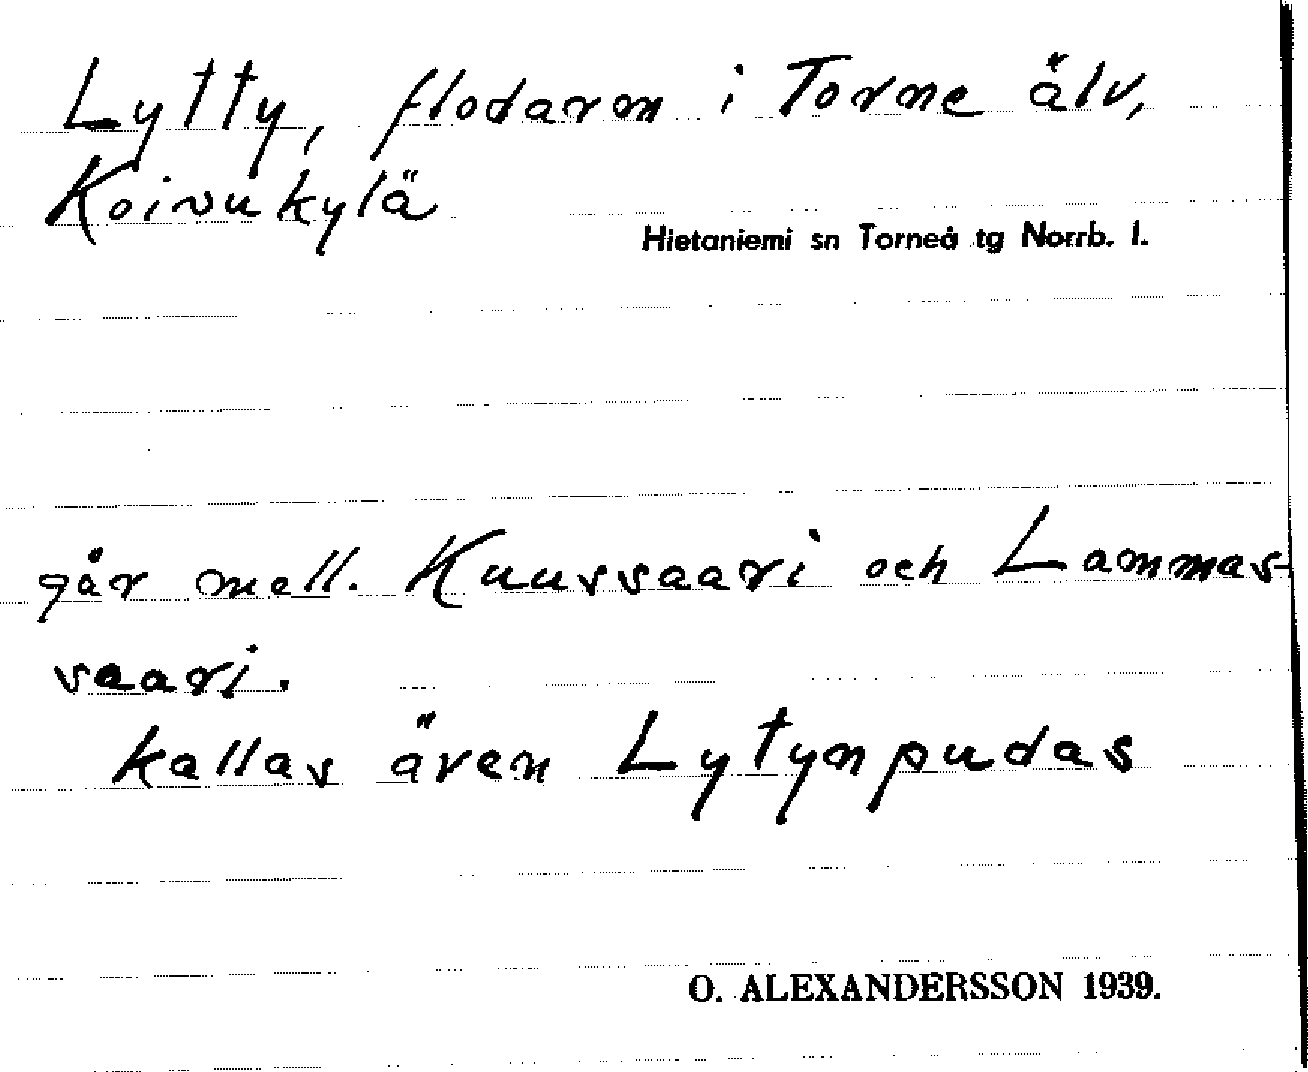 Lytty, flodarm i Torne älv,
Koivukylä
Hietaniemi sn Torneå tg Norrb. l.
går mell. Kuussaari och Lammas-
saari.
kallas även Lytynpudas
O. ALEXANDERSSON 1939.